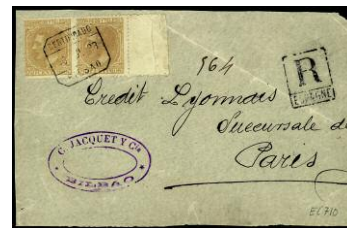 CERTIFICADO
564
R
ESPAGNE
Credit Lyonnais
Succursale de
Paris
C. JACQUET Y Cia
BILBAO
EC710